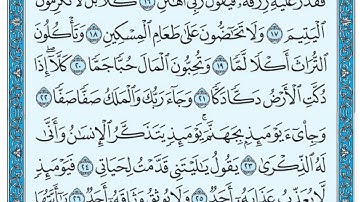 فَقَدَرَ عَلَيْهِ رِزْقَهُۥ فَيَقُولُ رَبِّىٓ أَهَٰنَنِ ١٦ كَلَّا ۖ بَل لَّا تُكْرِمُونَ
ٱلْيَتِيمَ ١٧ وَلَا تَحَٰٓضُّونَ عَلَىٰ طَعَامِ ٱلْمِسْكِينِ ١٨ وَتَأْكُلُونَ
ٱلتُّرَاثَ أَكْلًا لَّمًّا ١٩ وَتُحِبُّونَ ٱلْمَالَ حُبًّا جَمًّا ٢٠ كَلَّآ إِذَا
دُكَّتِ ٱلْأَرْضُ دَكًّا دَكًّا ٢١ وَجَآءَ رَبُّكَ وَٱلْمَلَكُ صَفًّا صَفًّا ٢٢
وَجِا۟ىٓءَ يَوْمَئِذٍۭ بِجَهَنَّمَ ۚ يَوْمَئِذٍ يَتَذَكَّرُ ٱلْإِنسَٰنُ وَأَنَّىٰ
لَهُ ٱلذِّكْرَىٰ ٢٣ يَقُولُ يَٰلَيْتَنِى قَدَّمْتُ لِحَيَاتِى ٢٤ فَيَوْمَئِذٍ
لَّا يُعَذِّبُ عَذَابَهُۥٓ أَحَدٌ ٢٥ وَلَا يُوثِقُ وَثَاقَهُۥٓ أَحَدٌ ٢٦ يَٰٓأَيَّتُهَا